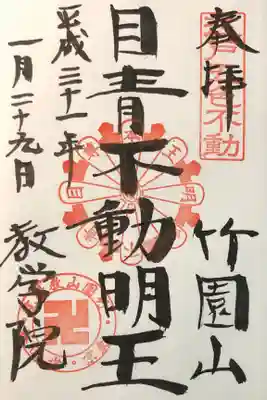 奉拝
竹園山
目青不動明王
平成三十一年
一月二十九日
教学院